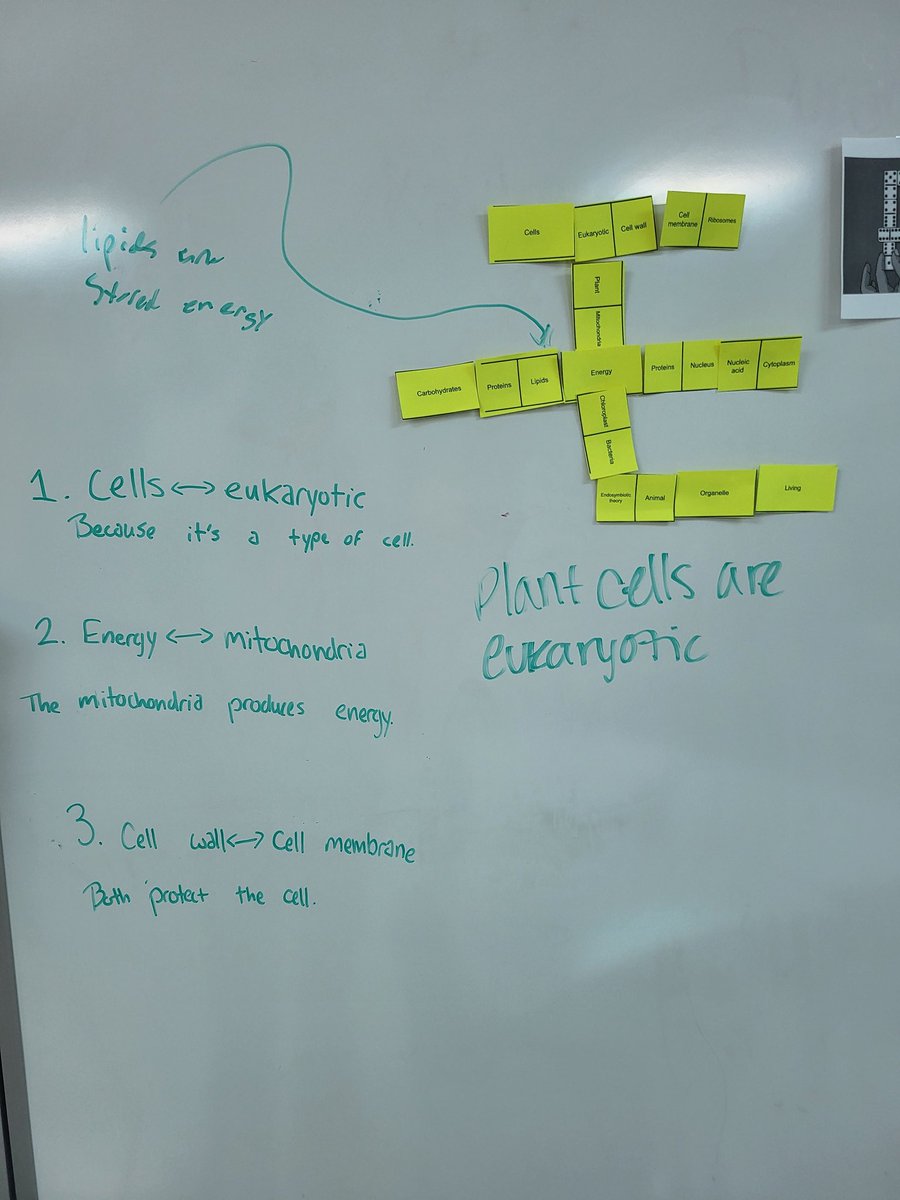 Cells
Eukaryotic
Cell wall
Cell membrane
Ribosomes
lipids
Stored energy
Plant
Mitochondria
Carbohydrates
Proteins
Lipids
Energy
Proteins
Nucleus
Nucleic acid
Cytoplasm
Chloroplast
Bacteria
Endosymbiotic theory
Animal
Organelle
Living
1. Cells <-> eukaryotic
Because it's a type of cell.
Plant cells are
eukaryotic
2. Energy <-> mitochondria
The mitochondria produces energy.
3. Cell wall <-> Cell membrane
Both protect the cell.